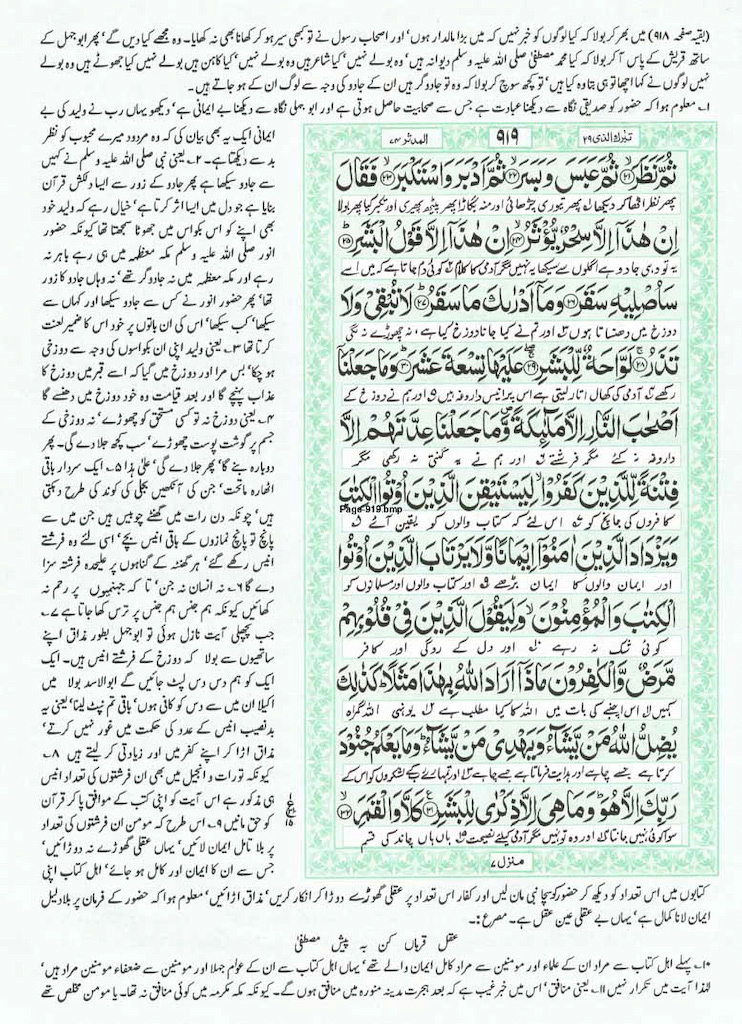 (بقیہ صفحہ ۹۱۸) میں بھر کر بولا کہ کیا لوگوں کو خبر نہیں کہ میں بڑا مالدار ہوں' اور اصحاب رسول نے تو کبھی سیر ہو کر کھانا بھی نہ کھایا۔ وہ مجھے کیا دیں گے' پھر ابو جہل کے
ساتھ قریش کے پاس آ کر بولا کہ کیا محمد مصطفیٰ صلی اللہ علیہ وسلم دیوانہ ہیں' وہ بولے نہیں' کیا شاعر ہیں وہ بولے نہیں' کیا کاہن ہیں بولے نہیں کیا جھوٹے ہیں وہ بولے
نہیں لوگوں نے کہا اچھا تو ہی بتا وہ کیا ہیں' تو کچھ سوچ کر بولا کہ وہ تو جادوگر ہیں ان کے جادو کی وجہ سے لوگ ان کے ہو جاتے ہیں۔
۱۔ معلوم ہوا کہ حضور کو صدیقی نگاہ سے دیکھنا عبادت ہے جس سے صحابیت حاصل ہوتی ہے اور ابو جہلی نگاہ سے دیکھنا بے ایمانی ہے' دیکھو یہاں رب نے ولید کی بے
تبٰرک الذی ۲۹
۹۱۹
المدثر ۷۴
ثُمَّ نَظَرَ ۙ﴿۲۱﴾ ثُمَّ عَبَسَ وَبَسَرَ ۙ﴿۲۲﴾ ثُمَّ اَدْبَرَ وَاسْتَكْبَرَ ۙ﴿۲۳﴾ فَقَالَ
پھر نظر اٹھا کر دیکھا پھر تیوری چڑھائی اور منہ بگاڑا پھر پیٹھ پھیری اور تکبر کیا پھر بولا
اِنْ هٰذَاۤ اِلَّا سِحْرٌ يُّؤْثَرُ ۙ﴿۲۴﴾ اِنْ هٰذَاۤ اِلَّا قَوْلُ الْبَشَرِ ؕ﴿۲۵﴾
یہ تو وہی جادو ہے اگلوں سے سیکھا یہ نہیں مگر آدمی کا کلام کوئی دم جاتا ہے کہ میں اسے
سَاُصْلِيْهِ سَقَرَ ﴿۲۶﴾ وَمَاۤ اَدْرٰىكَ مَا سَقَرُ ؕ﴿۲۷﴾ لَا تُبْقِيْ وَلَا
دوزخ میں دھنساتا ہوں اور تم نے کیا جانا دوزخ کیا ہے نہ چھوڑے نہ لگی
تَذَرُ ۚ﴿۲۸﴾ لَوَّاحَةٌ لِّلْبَشَرِ ۖ﴿۲۹﴾ عَلَيْهَا تِسْعَةَ عَشَرَ ؕ﴿۳۰﴾ وَمَا جَعَلْنَاۤ
رکھے آدمی کی کھال اتار لیتی ہے اس پر انیس داروغہ ہیں اور ہم نے دوزخ کے
اَصْحٰبَ النَّارِ اِلَّا مَلٰٓئِكَةً ۪ وَّمَا جَعَلْنَا عِدَّتَهُمْ اِلَّا
داروغہ نہ کئے مگر فرشتے اور ہم نے یہ گنتی نہ رکھی مگر
فِتْنَةً لِّلَّذِيْنَ كَفَرُوْا ۙ لِيَسْتَيْقِنَ الَّذِيْنَ اُوْتُوا الْكِتٰبَ
Page-919.bmp
کافروں کی جانچ کو اس لئے کہ کتاب والوں کو یقین آئے
وَيَزْدَادَ الَّذِيْنَ اٰمَنُوْۤا اِيْمَانًا وَّلَا يَرْتَابَ الَّذِيْنَ اُوْتُوا
اور ایمان والوں کا ایمان بڑھے اور کتاب والوں اور مسلمانوں کو
الْكِتٰبَ وَالْمُؤْمِنُوْنَ ۙ وَلِيَقُوْلَ الَّذِيْنَ فِيْ قُلُوْبِهِمْ
کوئی شک نہ رہے اور دل کے روگی اور کافر
مَّرَضٌ وَّالْكٰفِرُوْنَ مَاذَاۤ اَرَادَ اللّٰهُ بِهٰذَا مَثَلًا ؕ كَذٰلِكَ
کہیں اس اچنبے کی بات میں اللہ کا کیا مطلب ہے یونہی اللہ گمراہ
يُضِلُّ اللّٰهُ مَنْ يَّشَآءُ وَيَهْدِيْ مَنْ يَّشَآءُ ؕ وَمَا يَعْلَمُ جُنُوْدَ
کرتا ہے جسے چاہے اور ہدایت فرماتا ہے جسے چاہے اور تمہارے رب کے لشکروں کو اس کے
رَبِّكَ اِلَّا هُوَ ؕ وَمَا هِيَ اِلَّا ذِكْرٰى لِلْبَشَرِ ﴿۳۱﴾ كَلَّا وَالْقَمَرِ ۙ﴿۳۲﴾
سوا کوئی نہیں جانتا اور وہ تو نہیں مگر آدمی کیلئے نصیحت ہاں ہاں چاند کی قسم
منزل ۷
ایمانی ایک یہ بھی بیان کی کہ وہ مردود میرے محبوب کو نظر
بد سے دیکھتا ہے۔ ۲۔ یعنی نبی صلی اللہ علیہ وسلم نے کہیں
سے جادو سیکھا ہے پھر جادو کے زور سے ایسا دلکش قرآن
بنایا ہے جو دل میں ایسا اثر کرتا ہے' خیال رہے کہ ولید خود
بھی اپنے کو اس بکواس میں جھوٹا سمجھتا تھا کیونکہ حضور
انور صلی اللہ علیہ وسلم مکہ معظمہ میں ہی رہے باہر نہ
رہے اور مکہ معظمہ میں نہ جادوگر تھے' نہ وہاں جادو کا زور
تھا' پھر حضور انور نے کس سے جادو سیکھا اور کہاں سے
سیکھا' کب سیکھا' اس کی ان باتوں پر خود اس کا ضمیر لعنت
کرتا تھا ۳۔ یعنی ولید اپنی ان بکواسوں کی وجہ سے دوزخی
ہو چکا' بس مرا اور دوزخ میں گیا کہ اسے قبر میں دوزخ کا
عذاب پہنچے گا اور بعد قیامت وہ خود دوزخ میں دھنسے گا
۴۔ یعنی دوزخ نہ تو کسی مستحق کو چھوڑے' نہ دوزخی کے
جسم پر گوشت پوست چھوڑے' سب کچھ جلا دے گی۔ پھر
دوبارہ بنے گا' پھر جلا دے گی' علیٰ ہذا ۵۔ ایک سردار باقی
اٹھارہ ماتحت' جن کی آنکھیں بجلی کی کوند کی طرح دہکتی
ہیں' چونکہ دن رات میں گھنٹے چوبیس ہیں جن میں سے
پانچ تو پانچ نمازوں کے باقی انیس بچے' اسی لئے وہ فرشتے
انیس رکھے گئے' ہر گھنٹہ کے گناہوں پر علیحدہ فرشتہ سزا
دے گا ۶۔ نہ انسان نہ جن' تا کہ جہنمیوں پر رحم نہ
کھائیں کیونکہ ہم جنس ہم جنس پر ترس کھا جاتا ہے ۷۔
جب پچھلی آیت نازل ہوئی تو ابو جہل بطور مذاق اپنے
ساتھیوں سے بولا کہ دوزخ کے فرشتے انیس ہیں۔ ایک
ایک کو ہم دس دس لپٹ جائیں گے ابوالاسد بولا میں
اکیلا ان میں سے دس کو کافی ہوں' باقی تم نپٹ لینا' یعنی یہ
بدنصیب انیس کے عدد کی حکمت میں غور نہیں کرتے'
مذاق اڑا کر اپنے کفر میں اور زیادتی کر لیتے ہیں ۸۔
کیونکہ تورات و انجیل میں بھی ان فرشتوں کی تعداد انیس
ہی مذکور ہے اس آیت کو اپنی کتب کے موافق پا کر قرآن
کو حق مانیں ۹۔ اس طرح کہ مومن ان فرشتوں کی تعداد
پر بلا تامل ایمان لائیں' یہاں عقلی گھوڑے نہ دوڑائیں'
جس سے ان کا ایمان اور کامل ہو جائے' اہل کتاب اپنی
کتابوں میں اس تعداد کو دیکھ کر حضور کو سچا نبی مان لیں اور کفار اس تعداد پر عقلی گھوڑے دوڑا کر انکار کریں' مذاق اڑائیں' معلوم ہوا کہ حضور کے فرمان پر بلا دلیل
ایمان لانا کمال ہے' یہاں بے عقلی عین عقل ہے۔ مصرع :۔
عقل قرباں کن بہ پیش مصطفیٰ
۱۰۔ پہلے اہل کتاب سے مراد ان کے علماء اور مومنین سے مراد کامل ایمان والے تھے' یہاں اہل کتاب سے ان کے عوام جہلا اور مومنین سے ضعفاء مومنین مراد ہیں'
لہٰذا آیت میں تکرار نہیں ۱۱۔ یعنی منافق' اس میں خبر غیب ہے کہ بعد ہجرت مدینہ منورہ میں منافق ہوں گے۔ کیونکہ مکہ مکرمہ میں کوئی منافق نہ تھا۔ یا مومن مخلص تھے